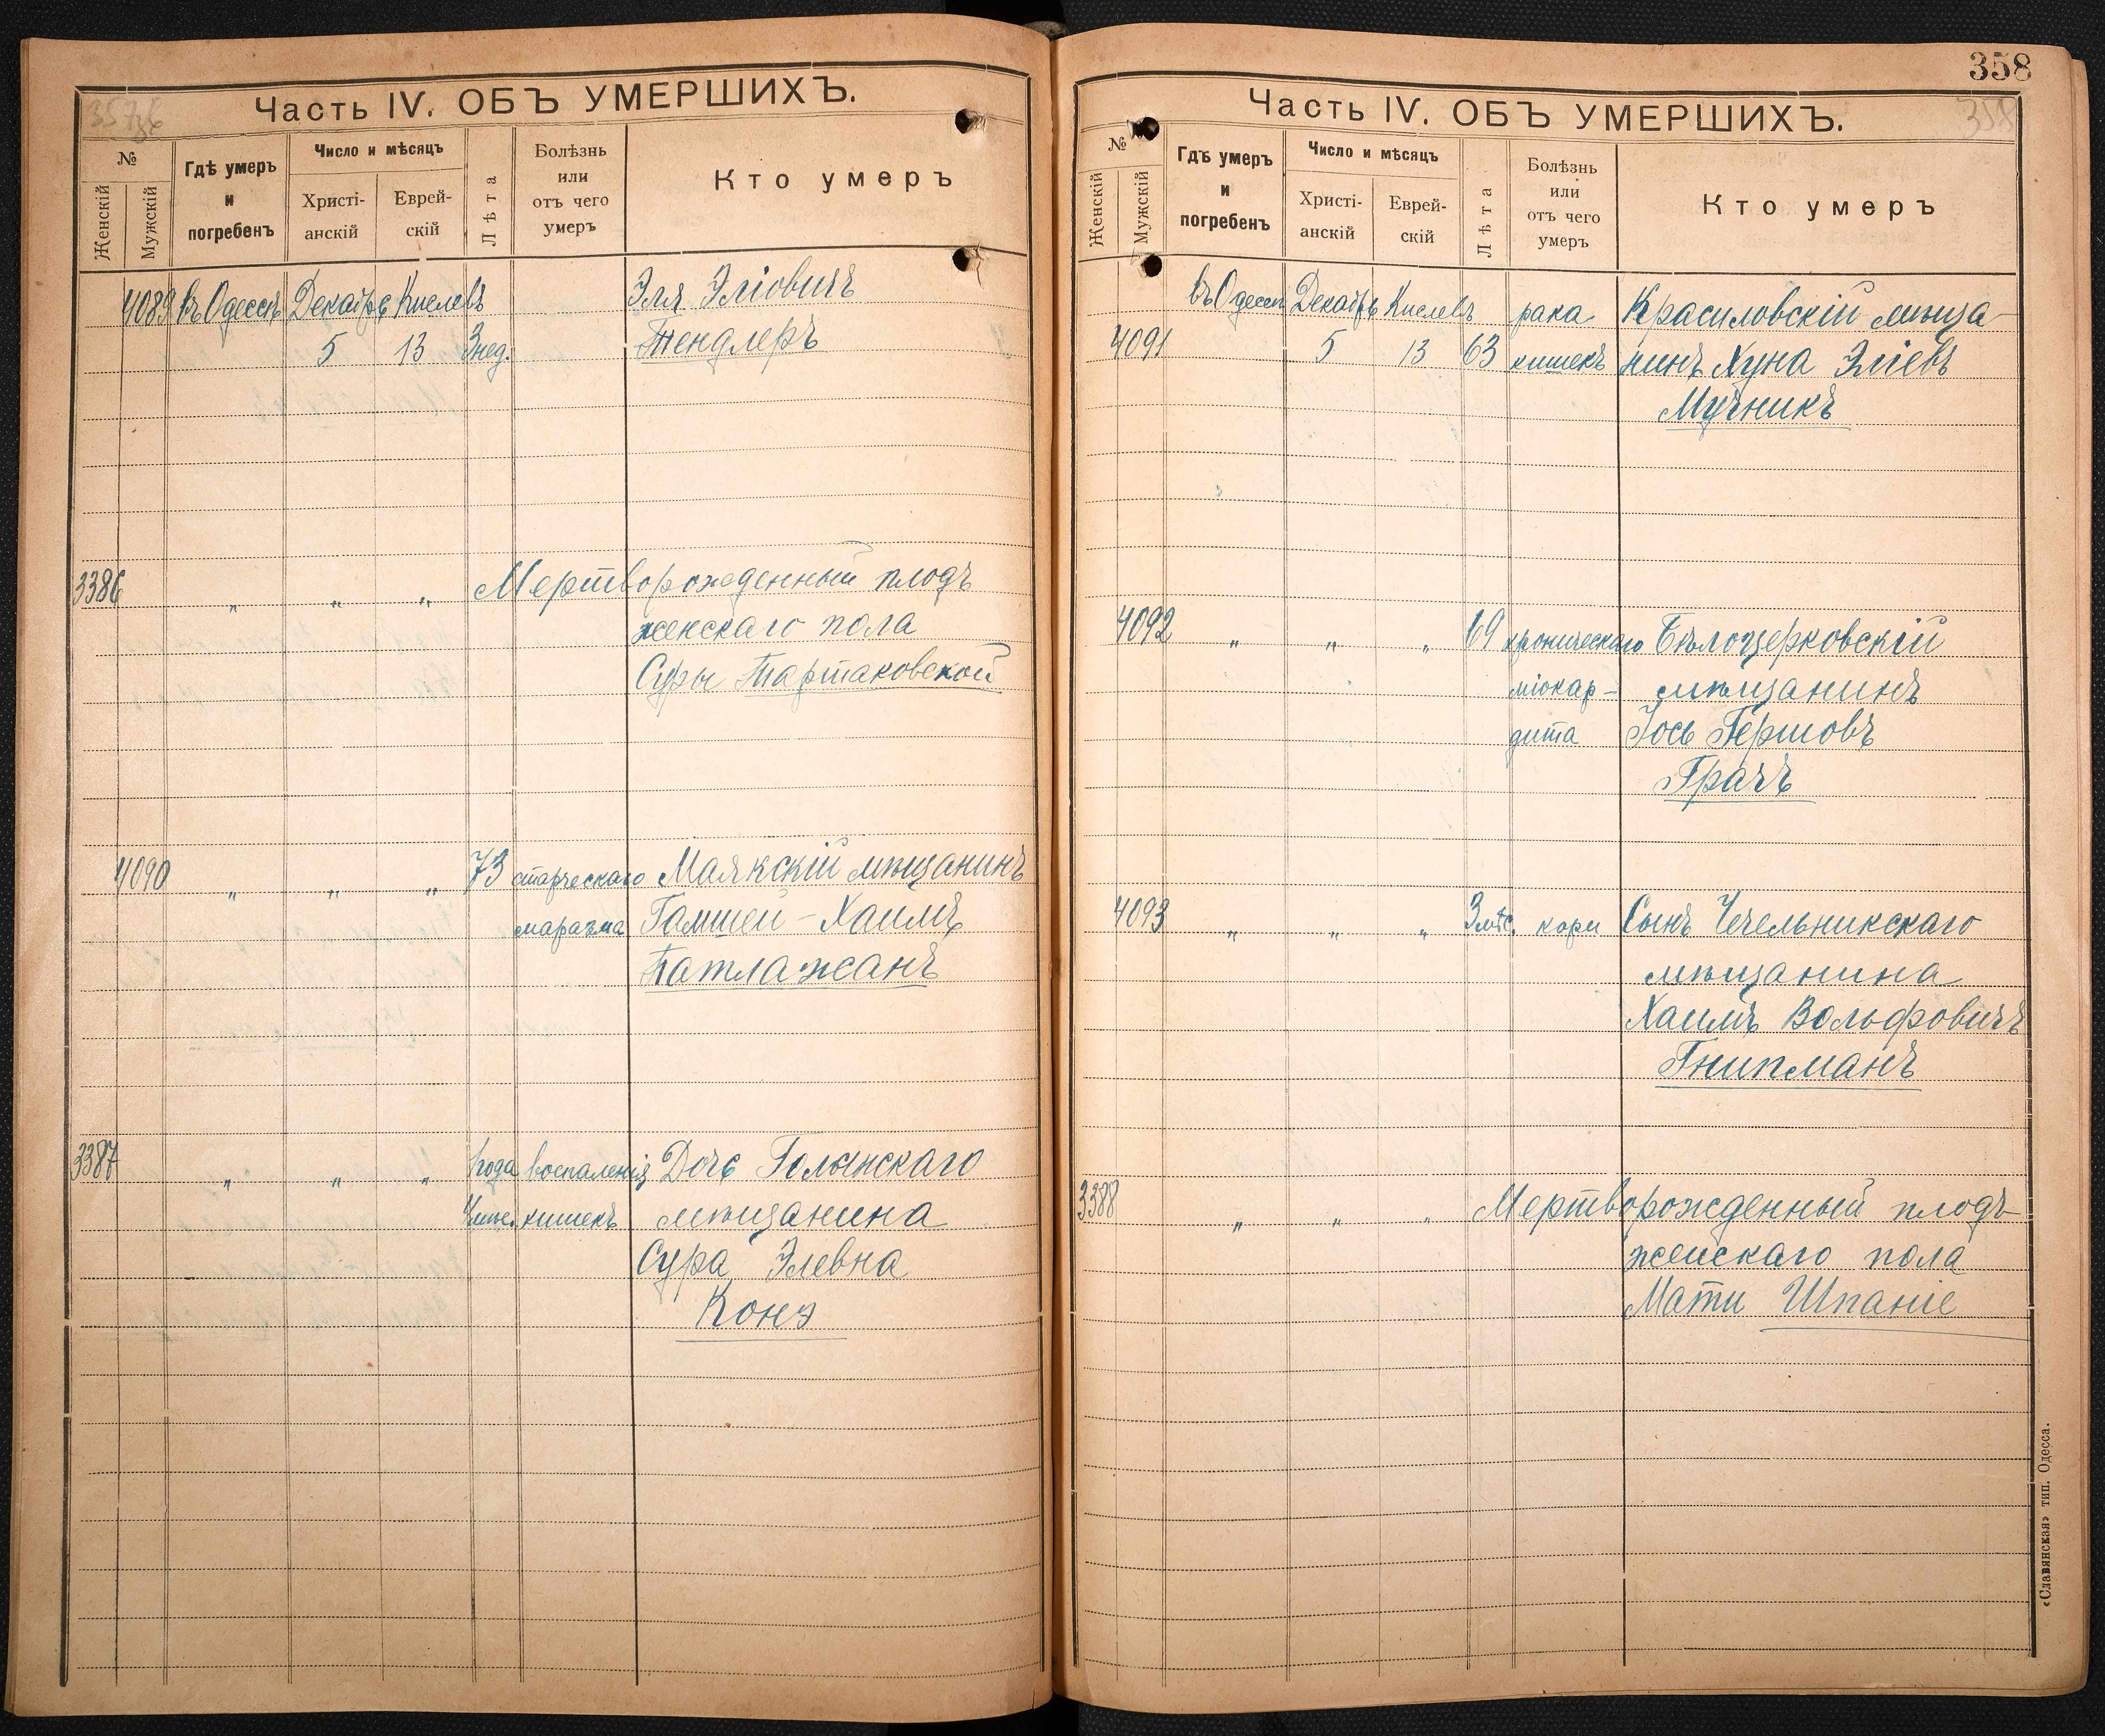 Часть IV. ОБЪ УМЕРШИХЪ.
№
Женскій
Мужскій
Гдѣ умеръ
и
погребенъ
Число и мѣсяцъ
Христі-
анскій
Еврей-
скій
Лѣта
Болѣзнь
или
отъ чего
умеръ
Кто умеръ
4089 въ Одессѣ Декабрь Кислевъ Эля Эліовичъ
5 13 3 нед. Тендлеръ
3386 „ „ „ Мертворожденный плодъ
женскаго пола
Суры Тартаковской
4090 „ „ „ 73 старческаго Маякскій мѣщанинъ
маразма Гамшей-Хаимъ
Патлажанъ
3387 „ „ „ 1 года воспаленія Дочь
4 мѣс. кишекъ мѣщанина
Сура Элевна
Конэ
358
Часть IV. ОБЪ УМЕРШИХЪ.
358
№
Женскій
Мужскій
Гдѣ умеръ
и
погребенъ
Число и мѣсяцъ
Христі-
анскій
Еврей-
скій
Лѣта
Болѣзнь
или
отъ чего
умеръ
Кто умеръ
въ Одессѣ Декабрь Кислевъ рака Красиловскій мѣща-
4091 5 13 63 кишекъ нинъ Хуна Эліевъ
Мучникъ
4092 „ „ „ 69 хроническаго Бѣлоцерковскій
міокар- мѣщанинъ
дита Іось Гершовъ
Грачъ
4093 „ „ „ 3 мѣс. кори Сынъ Чечельникскаго
мѣщанина
Хаимъ Вольфовичъ
Гнипманъ
3388 „ „ „ Мертворожденный плодъ
женскаго пола
Мати Шпаніе
«Славянская» тип. Одесса.